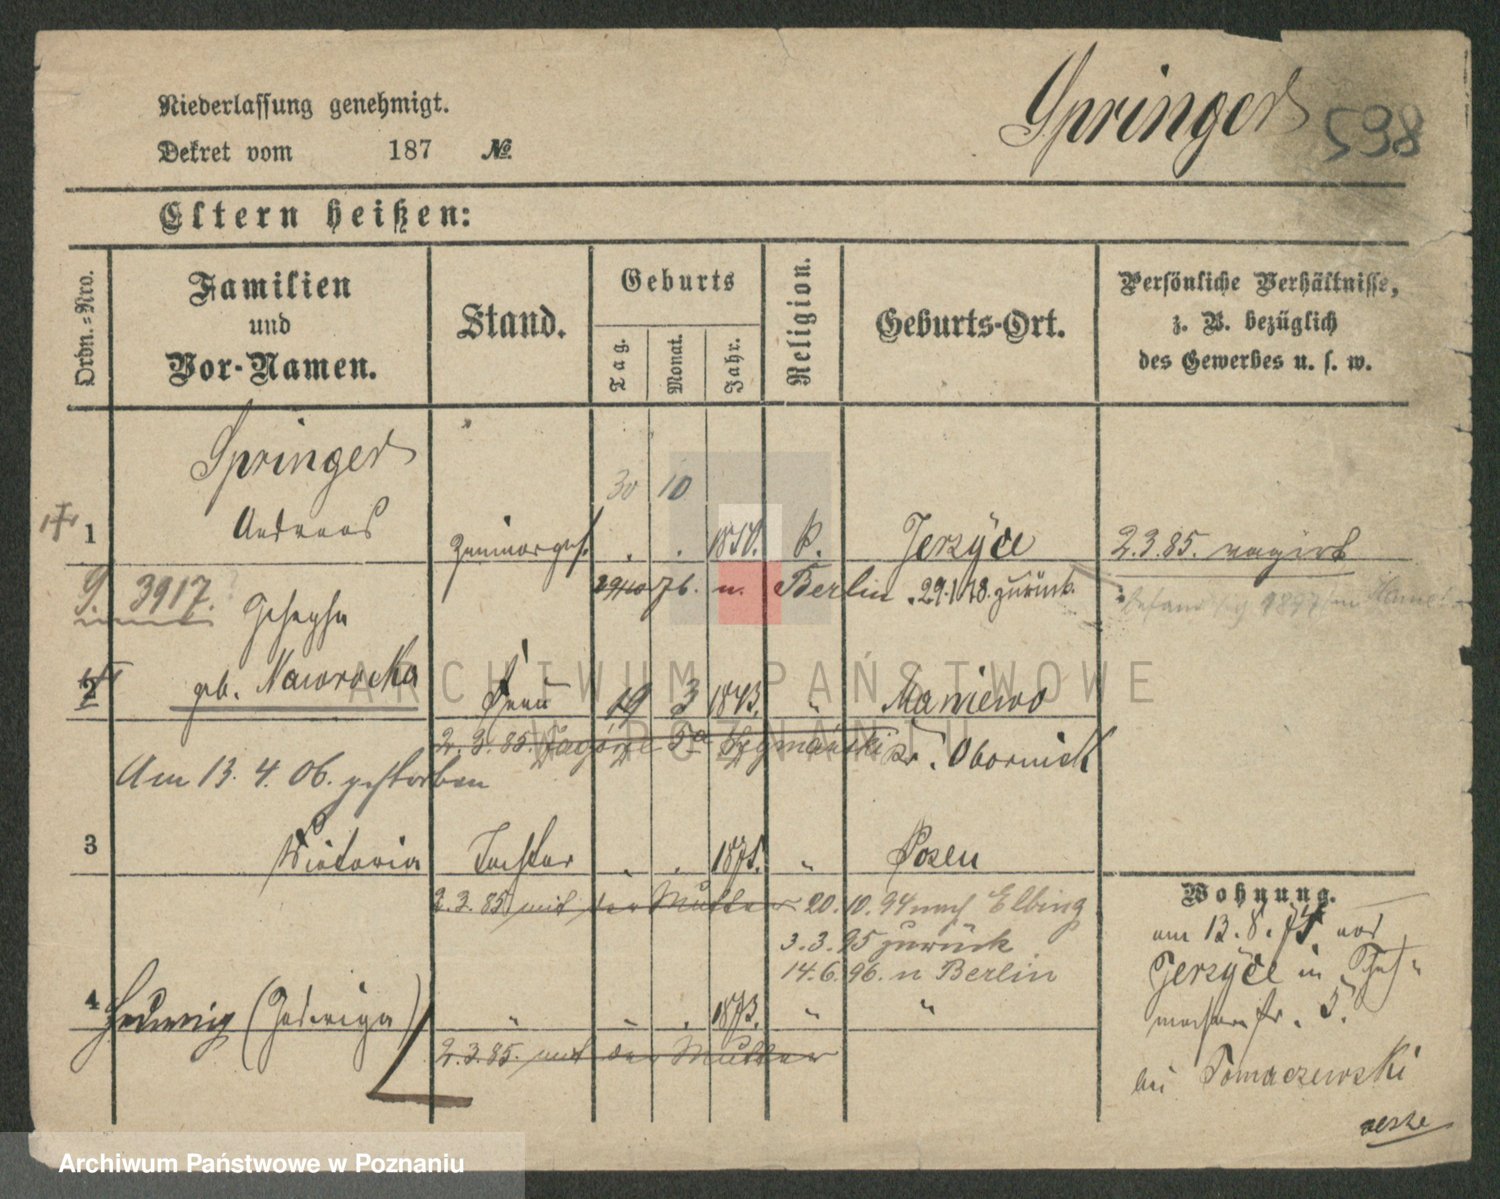 Niederlassung genehmigt.
Dekret vom 187 №
Springer 598
Eltern heißen:
Ordn.-Nro.
Familien
und
Vor-Namen.
Stand.
Geburts
Tag.
Monat.
Jahr.
Religion.
Geburts-Ort.
Persönliche Verhältnisse,
z. B. bezüglich
des Gewerbes u. s. w.
Springer
30 10
1 Andreas 1850. k. Jerzyče 2.3.85.
76. n. Berlin zurück.
3917.
Josepha
2 geb. Nawrocka Frau 19 3 1843. " Maniewo
2.3.85. Zagórze 5a Szymański Kr. Obornick
Am 13. 4. 06. gestorben
3 Victoria Tochter 1871. " Posen
2.3.85 mit der Mutter 20.10.94 nach Elbing
3.3.95 zurück
14.6.96. n Berlin
4 Hedwig (Jadwiga) " 1873. " "
2.3.85. mit der Mutter
Wohnung.
am 13.8. von
Jerzyče in
3.
bei Tomaczewski
ARCHIWUM PAŃSTWOWE
W POZNANIU
Archiwum Państwowe w Poznaniu